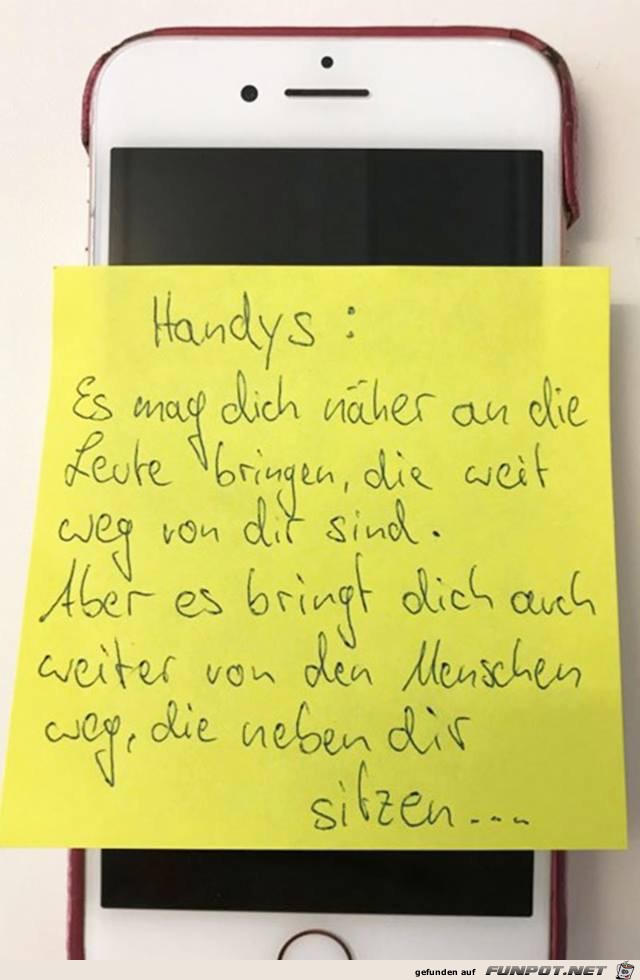 Handys :
Es mag dich näher an die
Leute bringen, die weit
weg von dir sind.
Aber es bringt dich auch
weiter von den Menschen
weg, die neben dir
sitzen...
gefunden auf FUNPOT.NET